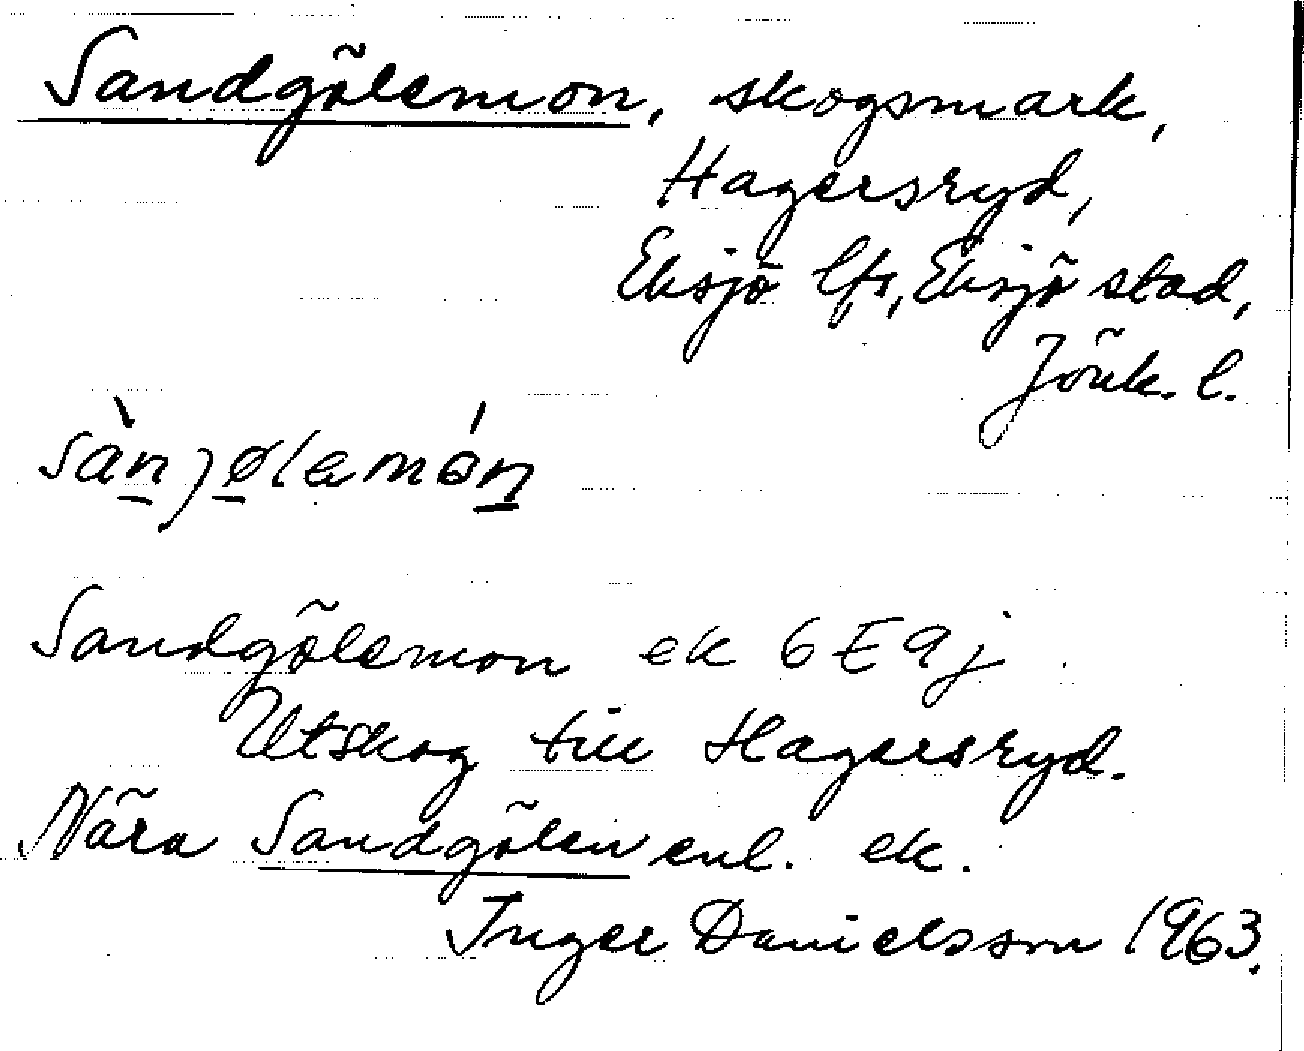 Sandgölemon, skogsmark,
Hagersryd,
Eksjö lfs, Eksjö stad,
Jönk. l.
sànjølemón
Sandgölemon ek 6E9j
Utskog till Hagersryd.
Nära Sandgölen enl. ek.
Inger Danielsson 1963.